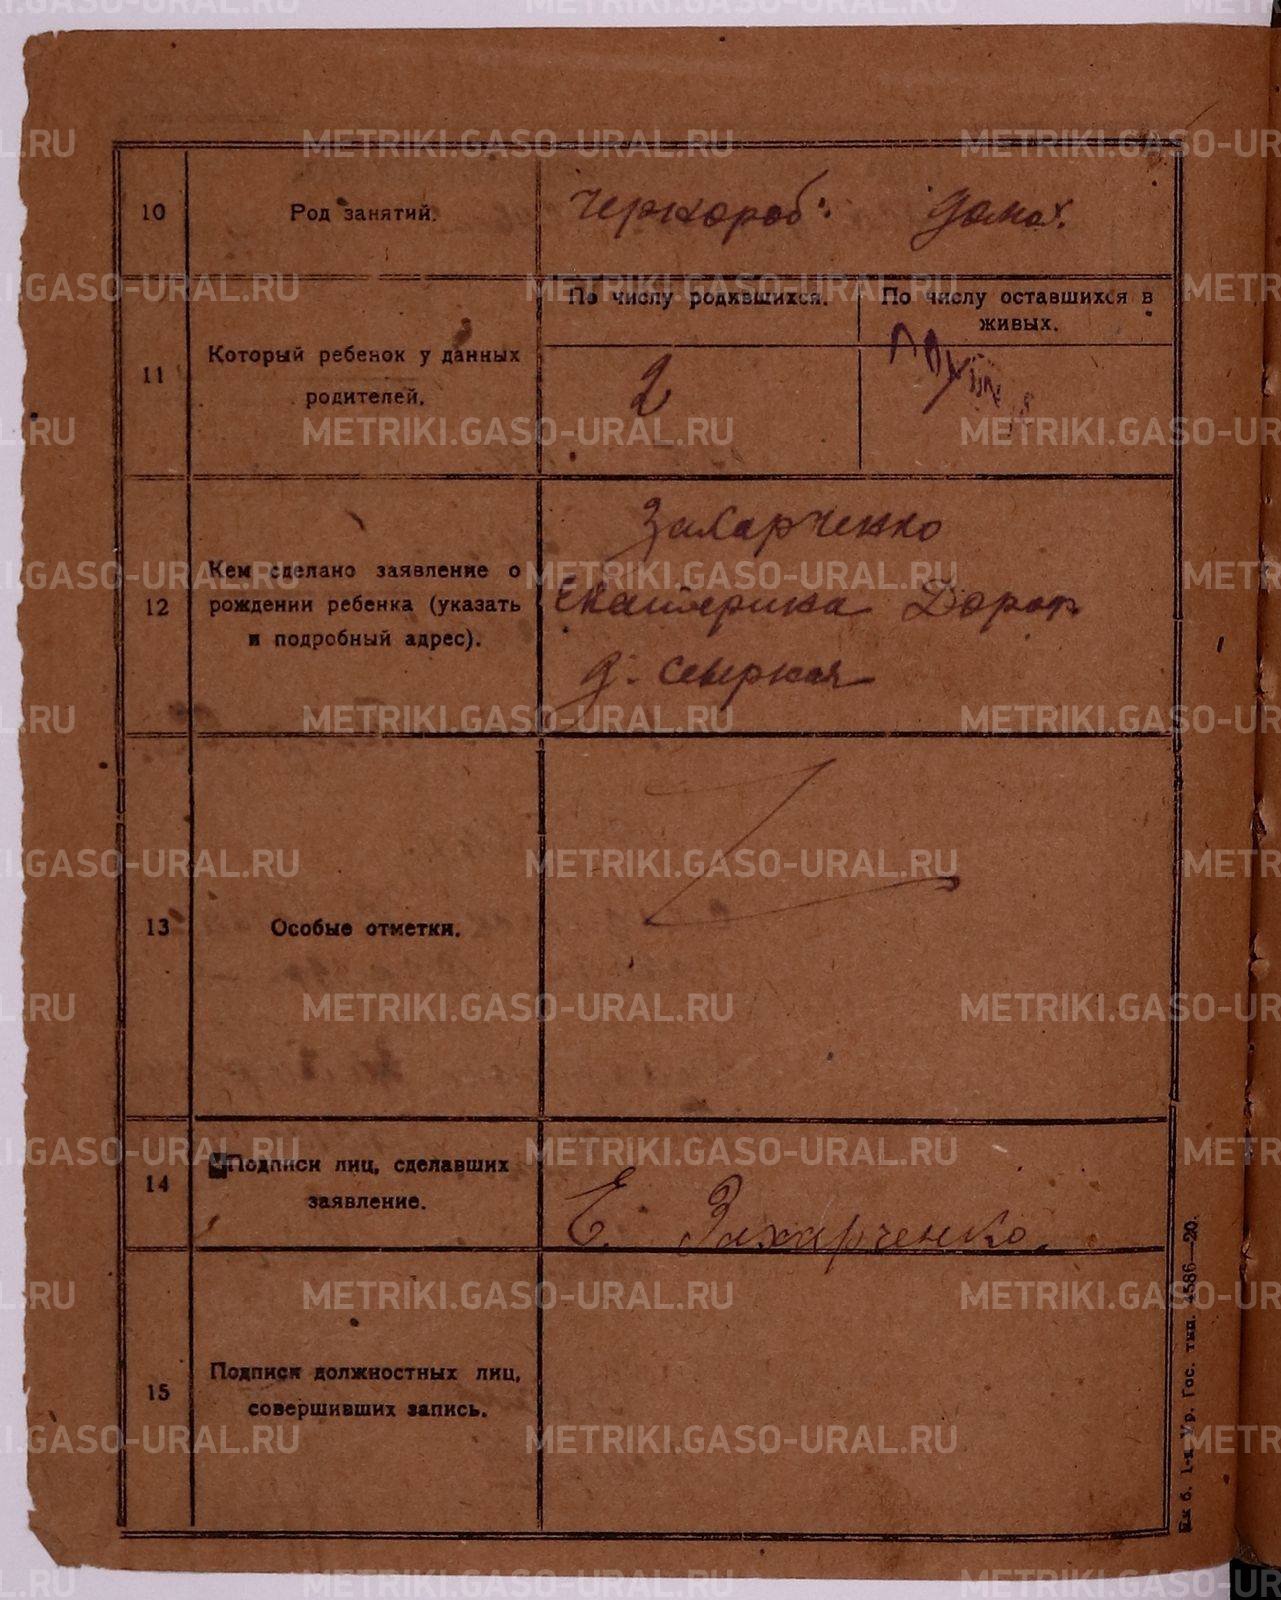 10
Род занятий.
Чернороб. домах.
11
Который ребенок у данных
родителей.
По числу родившихся.
По числу оставшихся в
живых.
2
12
Кем сделано заявление о
рождении ребенка (указать
и подробный адрес).
Захарченко
Екатерина Дороф
д.
13
Особые отметки.
14
Подписи лиц, сделавших
заявление.
Е. Захарченко.
15
Подписи должностных лиц,
совершивших запись.
Ур. Гос. тип. 4586—20.
METRIKI.GASO-URAL.RU